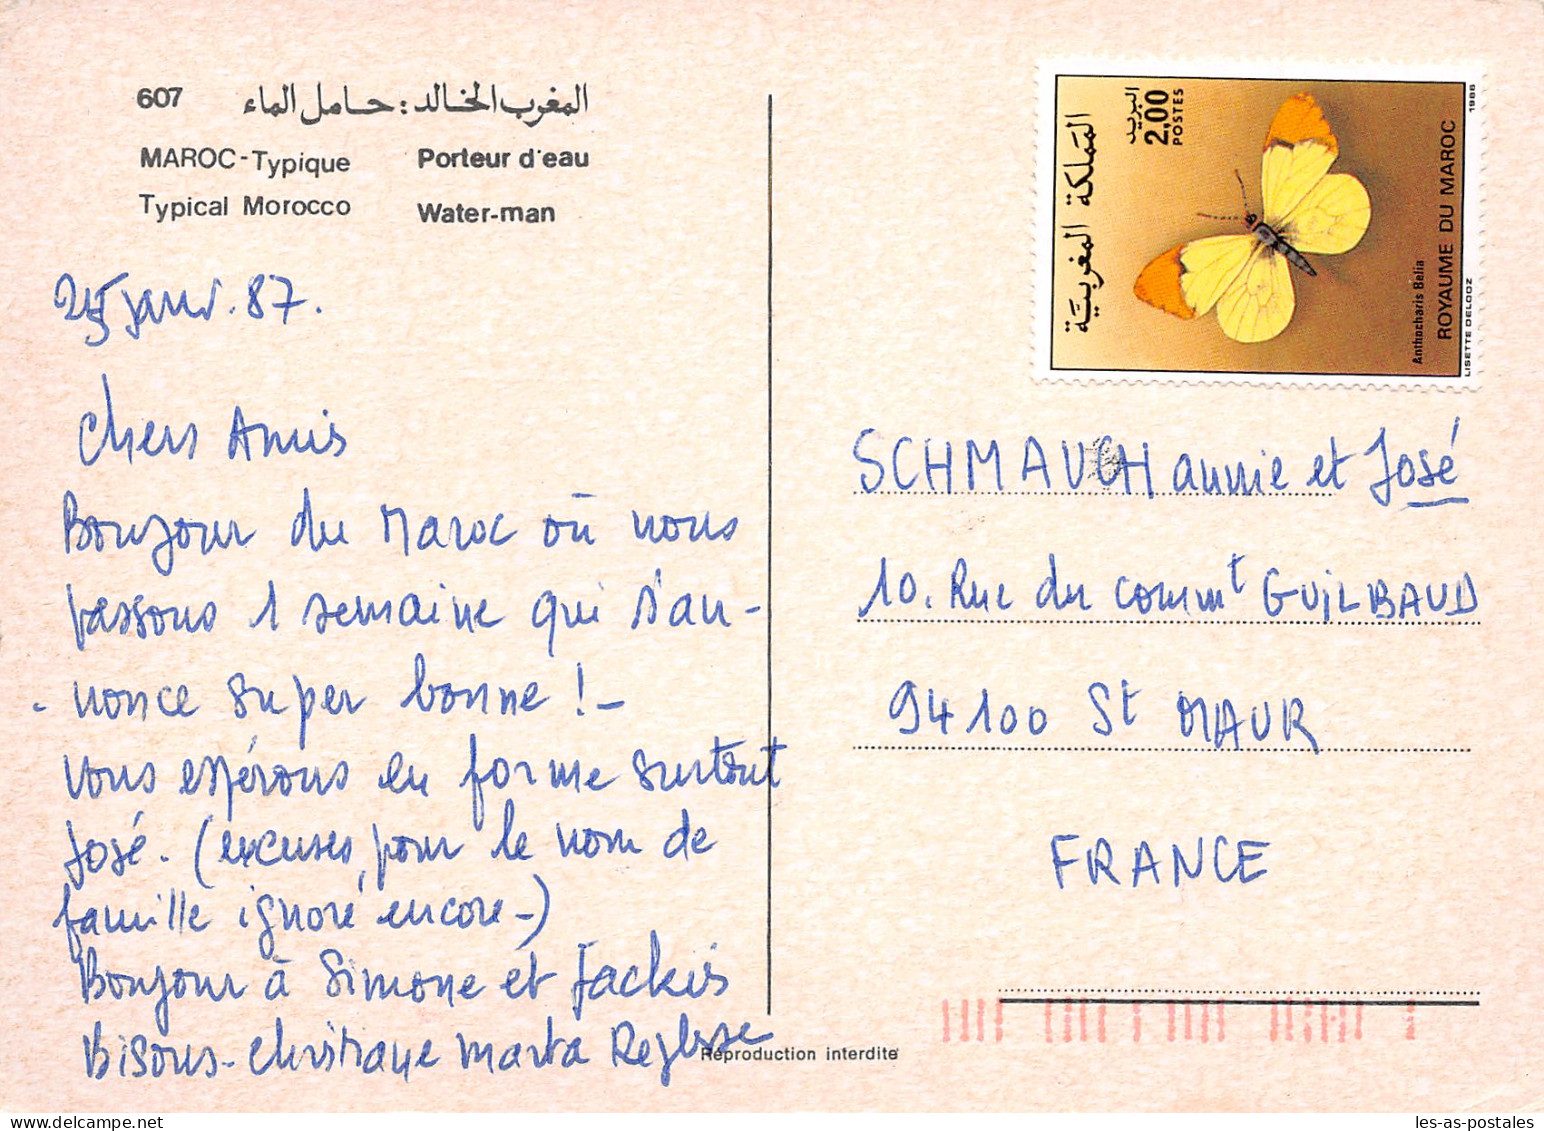 607 المغرب الخالد : حامل الماء
MAROC-Typique Porteur d'eau
Typical Morocco Water-man
25 janv. 87.
Chers Amis
Bonjour du Maroc où nous
passons 1 semaine qui s'an-
- nonce super bonne ! -
Vous espérons en forme surtout
José. (excuses pour le nom de
famille ignoré encore -)
Bonjour à Simone et Jackis
Bisous - Christiane Marta
Reproduction interdite
المملكة المغربية
البريد
2,00
POSTES
Anthocharis Belia
ROYAUME DU MAROC
LISETTE DELOOZ
1986
SCHMAUCH annie et José
10. Rue du commt GUILBAUD
94100 St MAUR
FRANCE
les-as-postales